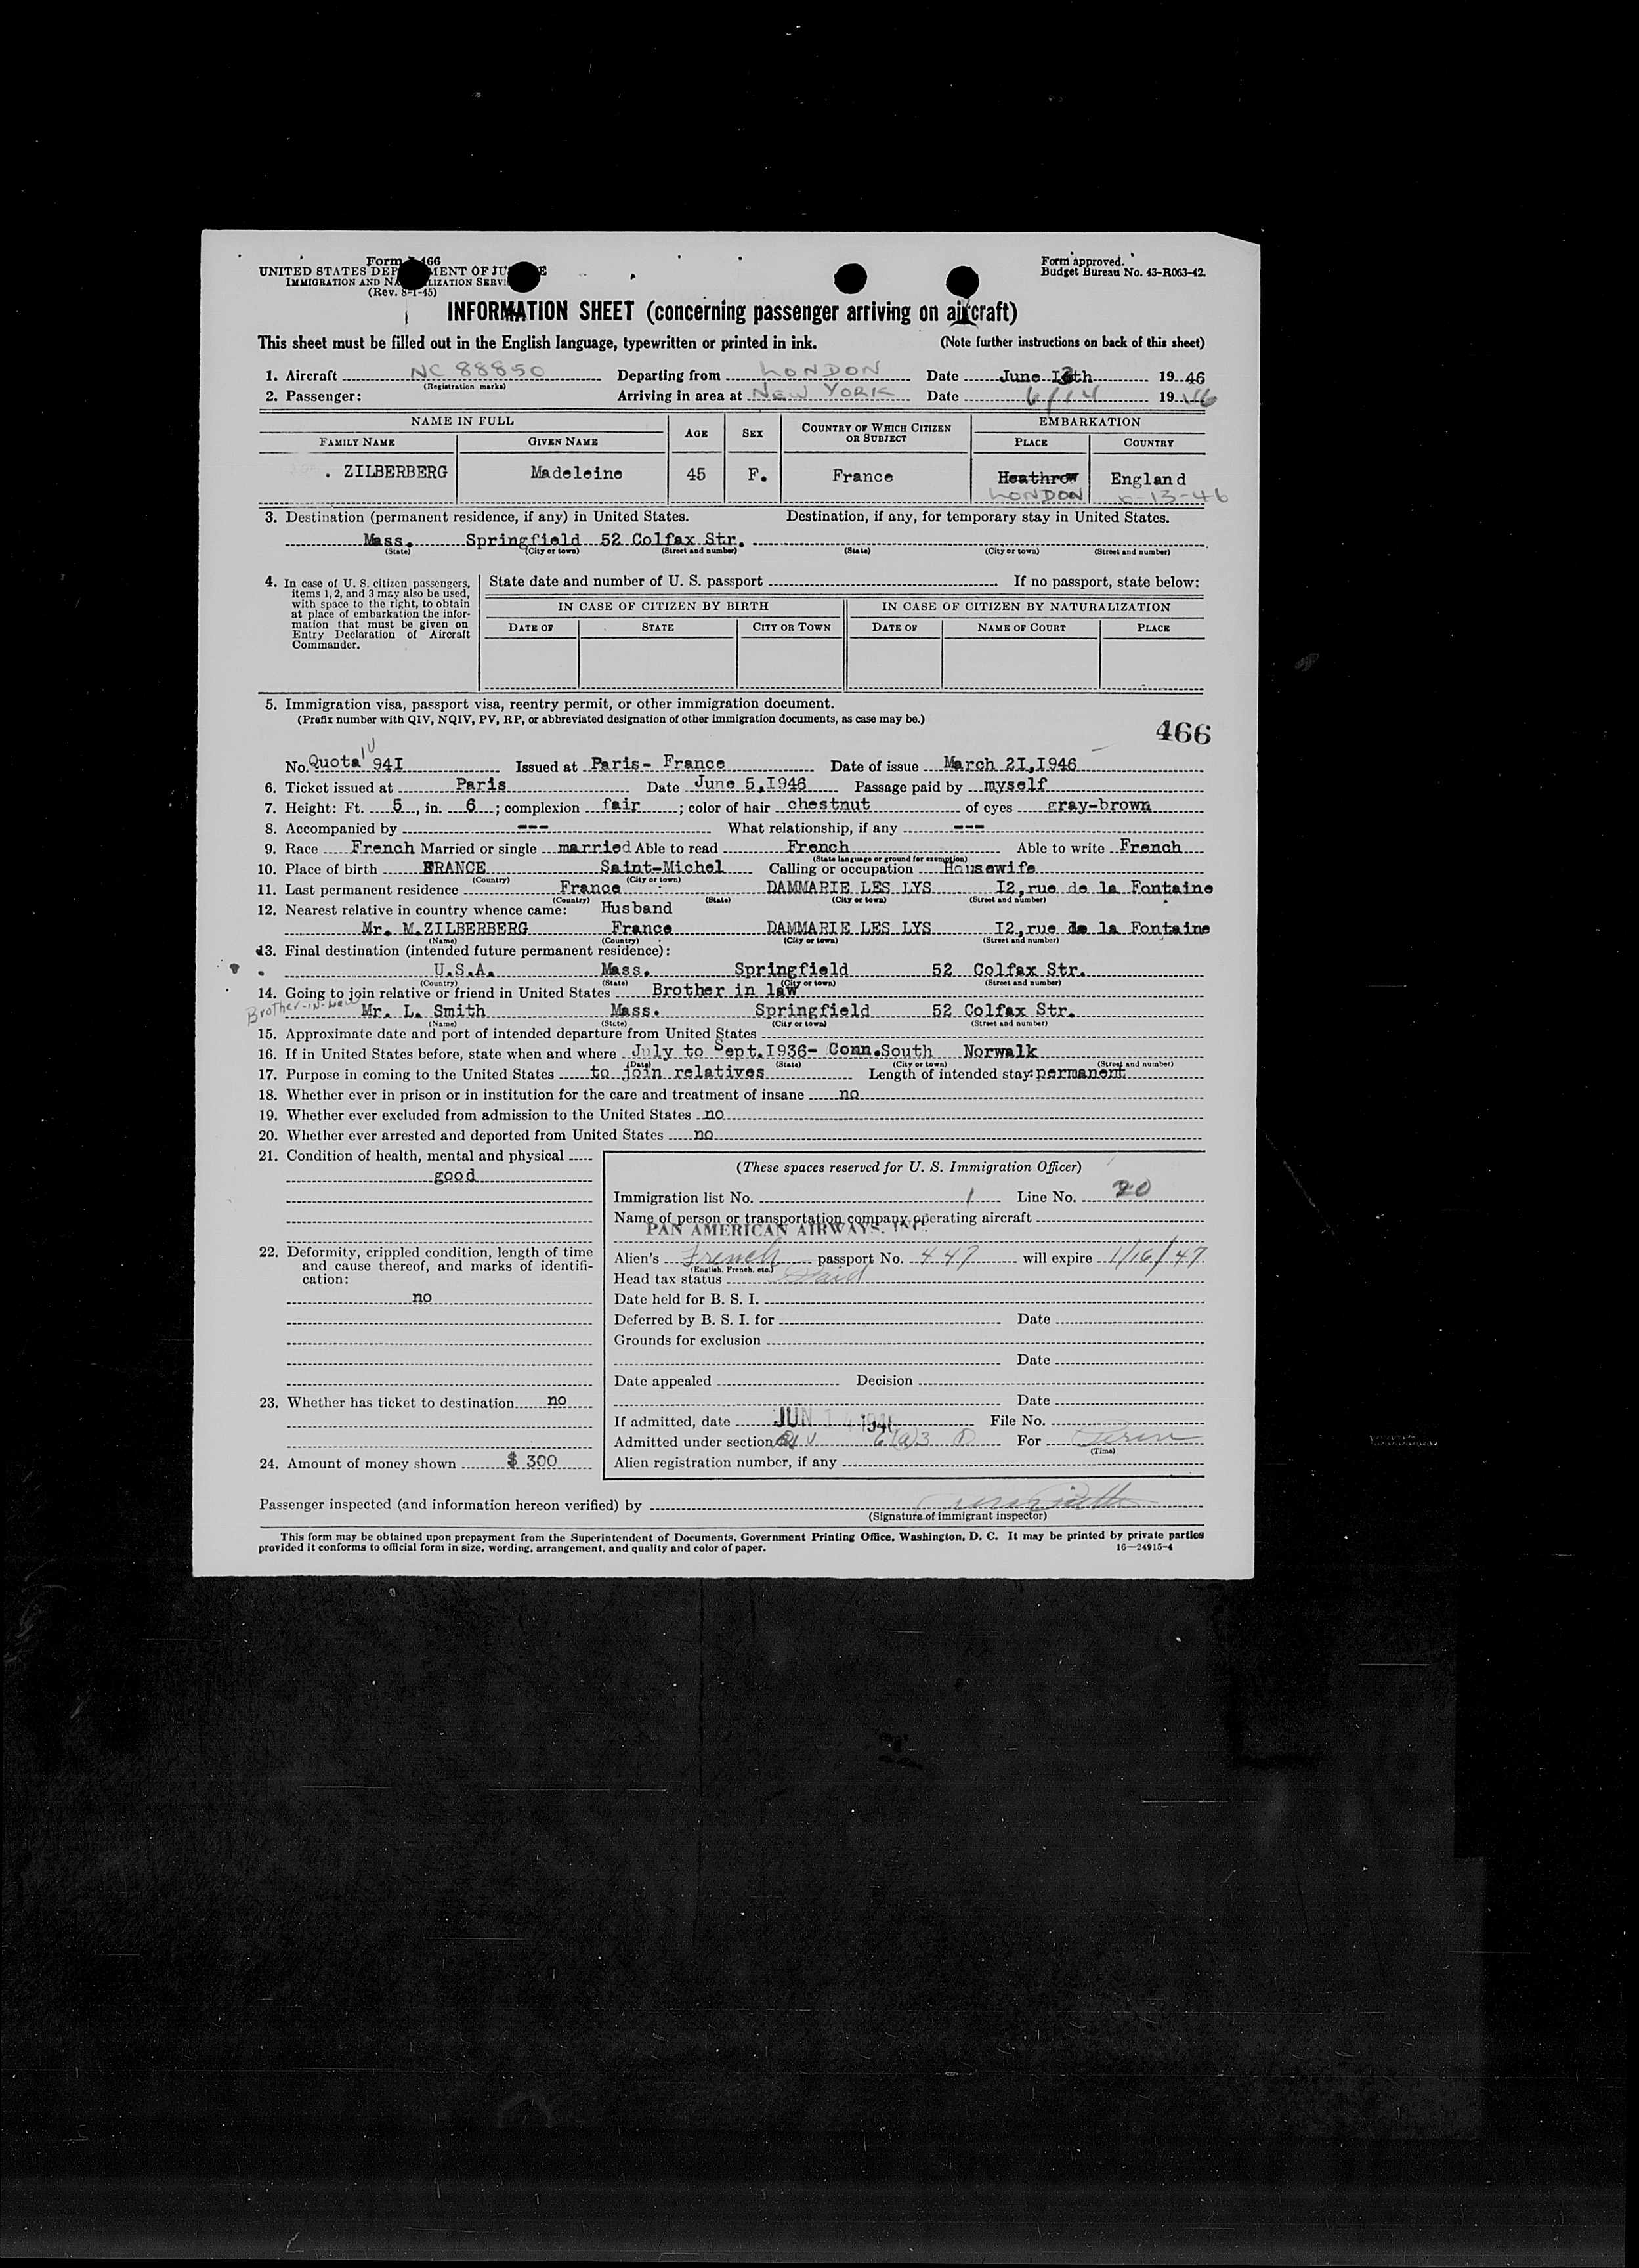 Form I-466
UNITED STATES DEPARTMENT OF JUSTICE
IMMIGRATION AND NATURALIZATION SERVICE
(Rev. 8-1-45)
Form approved.
Budget Bureau No. 43-R063-42.
INFORMATION SHEET (concerning passenger arriving on aircraft)
This sheet must be filled out in the English language, typewritten or printed in ink. (Note further instructions on back of this sheet)
1. Aircraft NC 88850 Departing from LONDON Date June 13th 19 46
(Registration marks)
2. Passenger: Arriving in area at NEW YORK Date 6/14 19 46
NAME IN FULL AGE SEX COUNTRY OF WHICH CITIZEN OR SUBJECT EMBARKATION
FAMILY NAME GIVEN NAME PLACE COUNTRY
. ZILBERBERG Madeleine 45 F. France Heathrow England
LONDON 6-13-46
3. Destination (permanent residence, if any) in United States. Destination, if any, for temporary stay in United States.
Mass. Springfield 52 Colfax Str.
(State) (City or town) (Street and number) (State) (City or town) (Street and number)
4. In case of U. S. citizen passengers, items 1, 2, and 3 may also be used, with space to the right, to obtain at place of embarkation the information that must be given on Entry Declaration of Aircraft Commander.
State date and number of U. S. passport If no passport, state below:
IN CASE OF CITIZEN BY BIRTH IN CASE OF CITIZEN BY NATURALIZATION
DATE OF STATE CITY OR TOWN DATE OF NAME OF COURT PLACE
5. Immigration visa, passport visa, reentry permit, or other immigration document.
(Prefix number with QIV, NQIV, PV, RP, or abbreviated designation of other immigration documents, as case may be.)
466
No. Quota IV 94I Issued at Paris- France Date of issue March 2I,I946
6. Ticket issued at Paris Date June 5,I946 Passage paid by myself
7. Height: Ft. 5, in. 6; complexion fair; color of hair chestnut of eyes gray-brown
8. Accompanied by --- What relationship, if any ---
9. Race French Married or single married Able to read French Able to write French
(State language or ground for exemption)
10. Place of birth FRANCE Saint-Michel Calling or occupation Housewife
(Country) (City or town)
11. Last permanent residence France DAMMARIE LES LYS I2,rue de la Fontaine
(Country) (State) (City or town) (Street and number)
12. Nearest relative in country whence came: Husband
Mr. M.ZILBERBERG France DAMMARIE LES LYS I2,rue de la Fontaine
(Name) (Country) (City or town) (Street and number)
13. Final destination (intended future permanent residence):
U.S.A. Mass. Springfield 52 Colfax Str.
(Country) (State) (City or town) (Street and number)
14. Going to join relative or friend in United States Brother in law
Brother-in-law Mr. L. Smith Mass. Springfield 52 Colfax Str.
(Name) (State) (City or town) (Street and number)
15. Approximate date and port of intended departure from United States
16. If in United States before, state when and where July to Sept.I936- Conn.South Norwalk
(Date) (State) (City or town) (Street and number)
17. Purpose in coming to the United States to join relatives Length of intended stay: permanent
18. Whether ever in prison or in institution for the care and treatment of insane no
19. Whether ever excluded from admission to the United States no
20. Whether ever arrested and deported from United States no
21. Condition of health, mental and physical
good
22. Deformity, crippled condition, length of time and cause thereof, and marks of identification:
no
23. Whether has ticket to destination no
24. Amount of money shown $ 300
(These spaces reserved for U. S. Immigration Officer)
Immigration list No. 1 Line No. 20
Name of person or transportation company operating aircraft
PAN AMERICAN AIRWAYS. INC.
Alien's French passport No. 447 will expire 1/16/47
(English, French, etc.)
Head tax status Paid
Date held for B. S. I.
Deferred by B. S. I. for Date
Grounds for exclusion
Date
Date appealed Decision
Date
If admitted, date JUN 14 1946 File No.
Admitted under section QIV 6(a)3 For Perm
(Time)
Alien registration number, if any
Passenger inspected (and information hereon verified) by
(Signature of immigrant inspector)
This form may be obtained upon prepayment from the Superintendent of Documents, Government Printing Office, Washington, D. C. It may be printed by private parties
provided it conforms to official form in size, wording, arrangement, and quality and color of paper. 16—24915-4